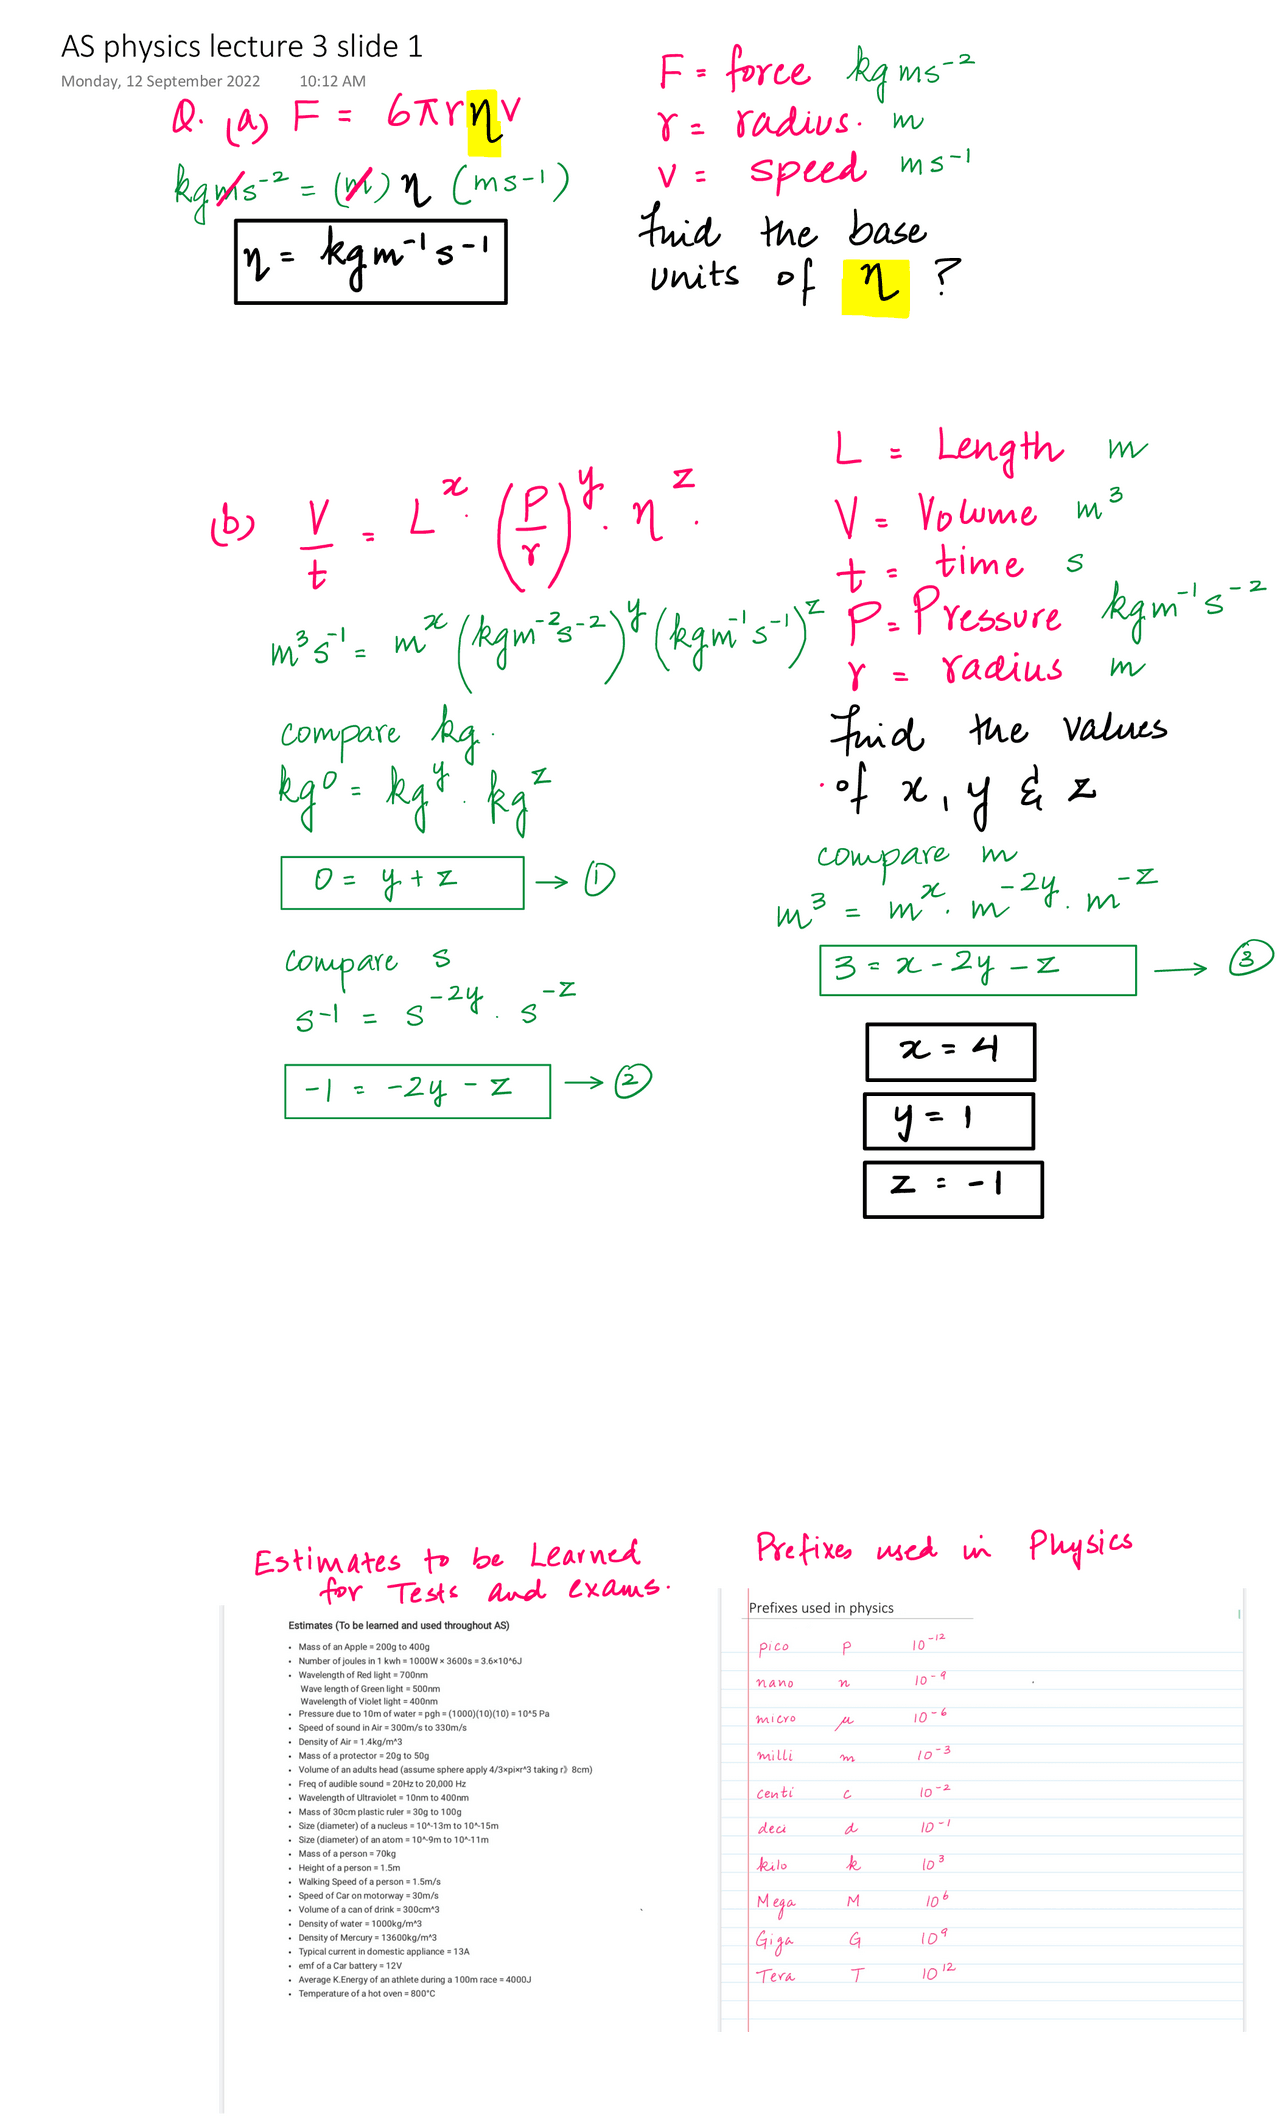 AS physics lecture 3 slide 1
Monday, 12 September 2022 10:12 AM
Q. (a) F = 6πrηv
kgms⁻² = (m) η (ms⁻¹)
η = kgm⁻¹s⁻¹
F = force kgms⁻²
r = radius. m
v = speed ms⁻¹
Find the base
units of η ?
(b) V/t = Lˣ. (P/r)ʸ. ηᶻ.
m³s⁻¹ = mˣ (kgm⁻²s⁻²)ʸ (kgm⁻¹s⁻¹)ᶻ
compare kg.
kg⁰ = kgʸ. kgᶻ
0 = y + z → ①
compare s
s⁻¹ = s⁻²ʸ. s⁻ᶻ
-1 = -2y - z → ②
L = Length m
V = Volume m³
t = time s
P = Pressure kgm⁻¹s⁻²
r = radius m
Find the values
of x, y & z
compare m
m³ = mˣ. m⁻²ʸ. m⁻ᶻ
3 = x - 2y - z → ③
x = 4
y = 1
z = -1
Estimates to be Learned
for Tests and exams.
Estimates (To be learned and used throughout AS)
• Mass of an Apple = 200g to 400g
• Number of joules in 1 kwh = 1000W × 3600s = 3.6×10^6J
• Wavelength of Red light = 700nm
Wave length of Green light = 500nm
Wavelength of Violet light = 400nm
• Pressure due to 10m of water = pgh = (1000)(10)(10) = 10^5 Pa
• Speed of sound in Air = 300m/s to 330m/s
• Density of Air = 1.4kg/m^3
• Mass of a protector = 20g to 50g
• Volume of an adults head (assume sphere apply 4/3×pi×r^3 taking r》8cm)
• Freq of audible sound = 20Hz to 20,000 Hz
• Wavelength of Ultraviolet = 10nm to 400nm
• Mass of 30cm plastic ruler = 30g to 100g
• Size (diameter) of a nucleus = 10^-13m to 10^-15m
• Size (diameter) of an atom = 10^-9m to 10^-11m
• Mass of a person = 70kg
• Height of a person = 1.5m
• Walking Speed of a person = 1.5m/s
• Speed of Car on motorway = 30m/s
• Volume of a can of drink = 300cm^3
• Density of water = 1000kg/m^3
• Density of Mercury = 13600kg/m^3
• Typical current in domestic appliance = 13A
• emf of a Car battery = 12V
• Average K.Energy of an athlete during a 100m race = 4000J
• Temperature of a hot oven = 800°C
Prefixes used in Physics
Prefixes used in physics
pico p 10⁻¹²
nano n 10⁻⁹
micro μ 10⁻⁶
milli m 10⁻³
centi c 10⁻²
deci d 10⁻¹
kilo k 10³
Mega M 10⁶
Giga G 10⁹
Tera T 10¹²